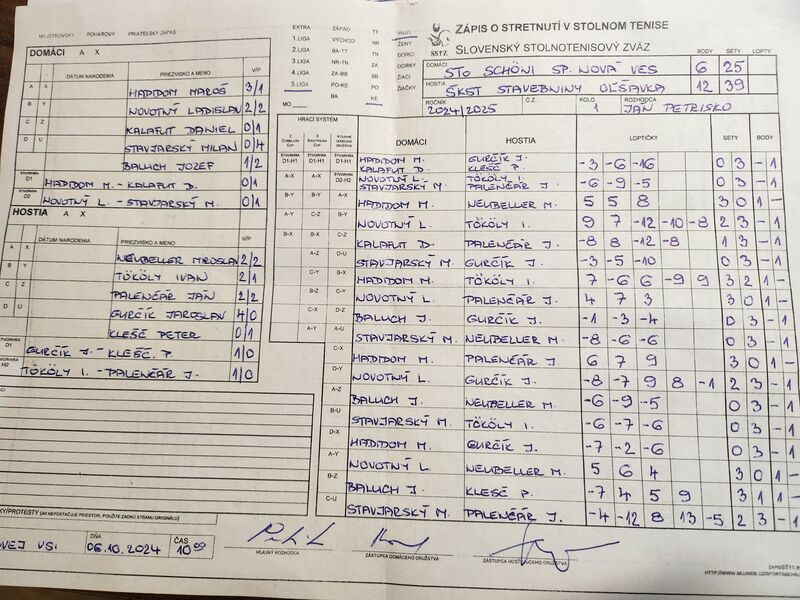 MAJSTROVSKÝ POHÁROVÝ PRIATEĽSKÝ ZÁPAS
DOMÁCI A X
DÁTUM NARODENIA PRIEZVISKO A MENO V/P
A X HADIDOM MAROŠ 3/1
B Y NOVOTNÝ LADISLAV 2/2
C Z KALAFUT DANIEL 0/1
D U STAVJARSKÝ MILAN 0/4
BALUCH JOZEF 1/2
ŠTVORHRA D1 HADIDOM M. - KALAFUT D. 0/1
ŠTVORHRA D2 NOVOTNÝ L. - STAVJARSKÝ M. 0/1
HOSTIA A X
DÁTUM NARODENIA PRIEZVISKO A MENO V/P
A X NEUBELLER MIROSLAV 2/2
B Y TÖKÖLY IVAN 2/1
C Z PALENČÁR JAN 2/2
D U GURČÍK JAROSLAV 4/0
KLEŠČ PETER 0/1
GURČÍK J. - KLEŠČ P. 1/0
H2 TÖKÖLY I. - PALENČÁR J. 1/0
EXTRA ZÁPAD TT MUŽI
1.LIGA VÝCHOD NR ŽENY
2.LIGA BA-TT TN DORCI
3.LIGA NR-TN ZA DORKY
4.LIGA ZA-BB BB ŽIACI
5.LIGA PO-KE PO ŽIAČKY
MO BA KE
SSTZ
ZÁPIS O STRETNUTÍ V STOLNOM TENISE
SLOVENSKÝ STOLNOTENISOVÝ ZVÄZ
BODY SETY LOPTY
DOMÁCI STO SCHÖNI SP. NOVÁ VES 6 25
HOSTIA ŠKST STAVEBNINY OĽŠAVKA 12 39
ROČNÍK 2024/2025 Č.Z. KOLO 1 ROZHODCA JÁN PETRISKO
HRACÍ SYSTÉM
DOMÁCI HOSTIA LOPTIČKY SETY BODY
D1-H1 D1-H1 HADIDOM M. KALAFUT D. GURČÍK J. KLEŠČ P. -3 -6 -16 0 3 - 1
A-X A-X D2-H2 NOVOTNÝ L. STAVJARSKÝ M. TÖKÖLY I. PALENČÁR J. -6 -9 -5 0 3 - 1
B-Y B-Y A-X HADIDOM M. NEUBELLER M. 5 5 8 3 0 1 -
A-Y C-Z B-Y NOVOTNÝ L. TÖKÖLY I. 9 7 -12 -10 -8 2 3 - 1
B-X B-X C-Z KALAFUT D. PALENČÁR J. -8 8 -12 -8 1 3 - 1
A-Z D-U STAVJARSKÝ M. GURČÍK J. -3 -5 -10 0 3 - 1
C-Y B-X HADIDOM M. TÖKÖLY I. 7 -6 6 -9 9 3 2 1 -
B-Z C-Y NOVOTNÝ L. PALENČÁR J. 4 7 3 3 0 1 -
C-X D-Z BALUCH J. GURČÍK J. -1 -3 -4 0 3 - 1
A-Y A-U STAVJARSKÝ M. NEUBELLER M. -8 -6 -6 0 3 - 1
C-X HADIDOM M. PALENČÁR J. 6 7 9 3 0 1 -
D-Y NOVOTNÝ L. GURČÍK J. -8 -7 9 8 -1 2 3 - 1
A-Z BALUCH J. NEUBELLER M. -6 -9 -5 0 3 - 1
B-U STAVJARSKÝ M. TÖKÖLY I. -6 -7 -6 0 3 - 1
D-X HADIDOM M. GURČÍK J. -7 -2 -6 0 3 - 1
A-Y NOVOTNÝ L. NEUBELLER M. 5 6 4 3 0 1 -
B-Z BALUCH J. KLEŠČ P. -7 4 5 9 3 1 1 -
C-U STAVJARSKÝ M. PALENČÁR J. -4 -12 8 13 -5 2 3 - 1
KY/PROTESTY (AK NEPOSTAČUJE PRIESTOR, POUŽITE ZADNÚ STRANU ORIGINÁLU)
VEJ VSI DŇA 06.10.2024 ČAS 10 00
HLAVNÝ ROZHODCA ZÁSTUPCA DOMÁCEHO DRUŽSTVA ZÁSTUPCA HOSŤUJÚCEHO DRUŽSTVA